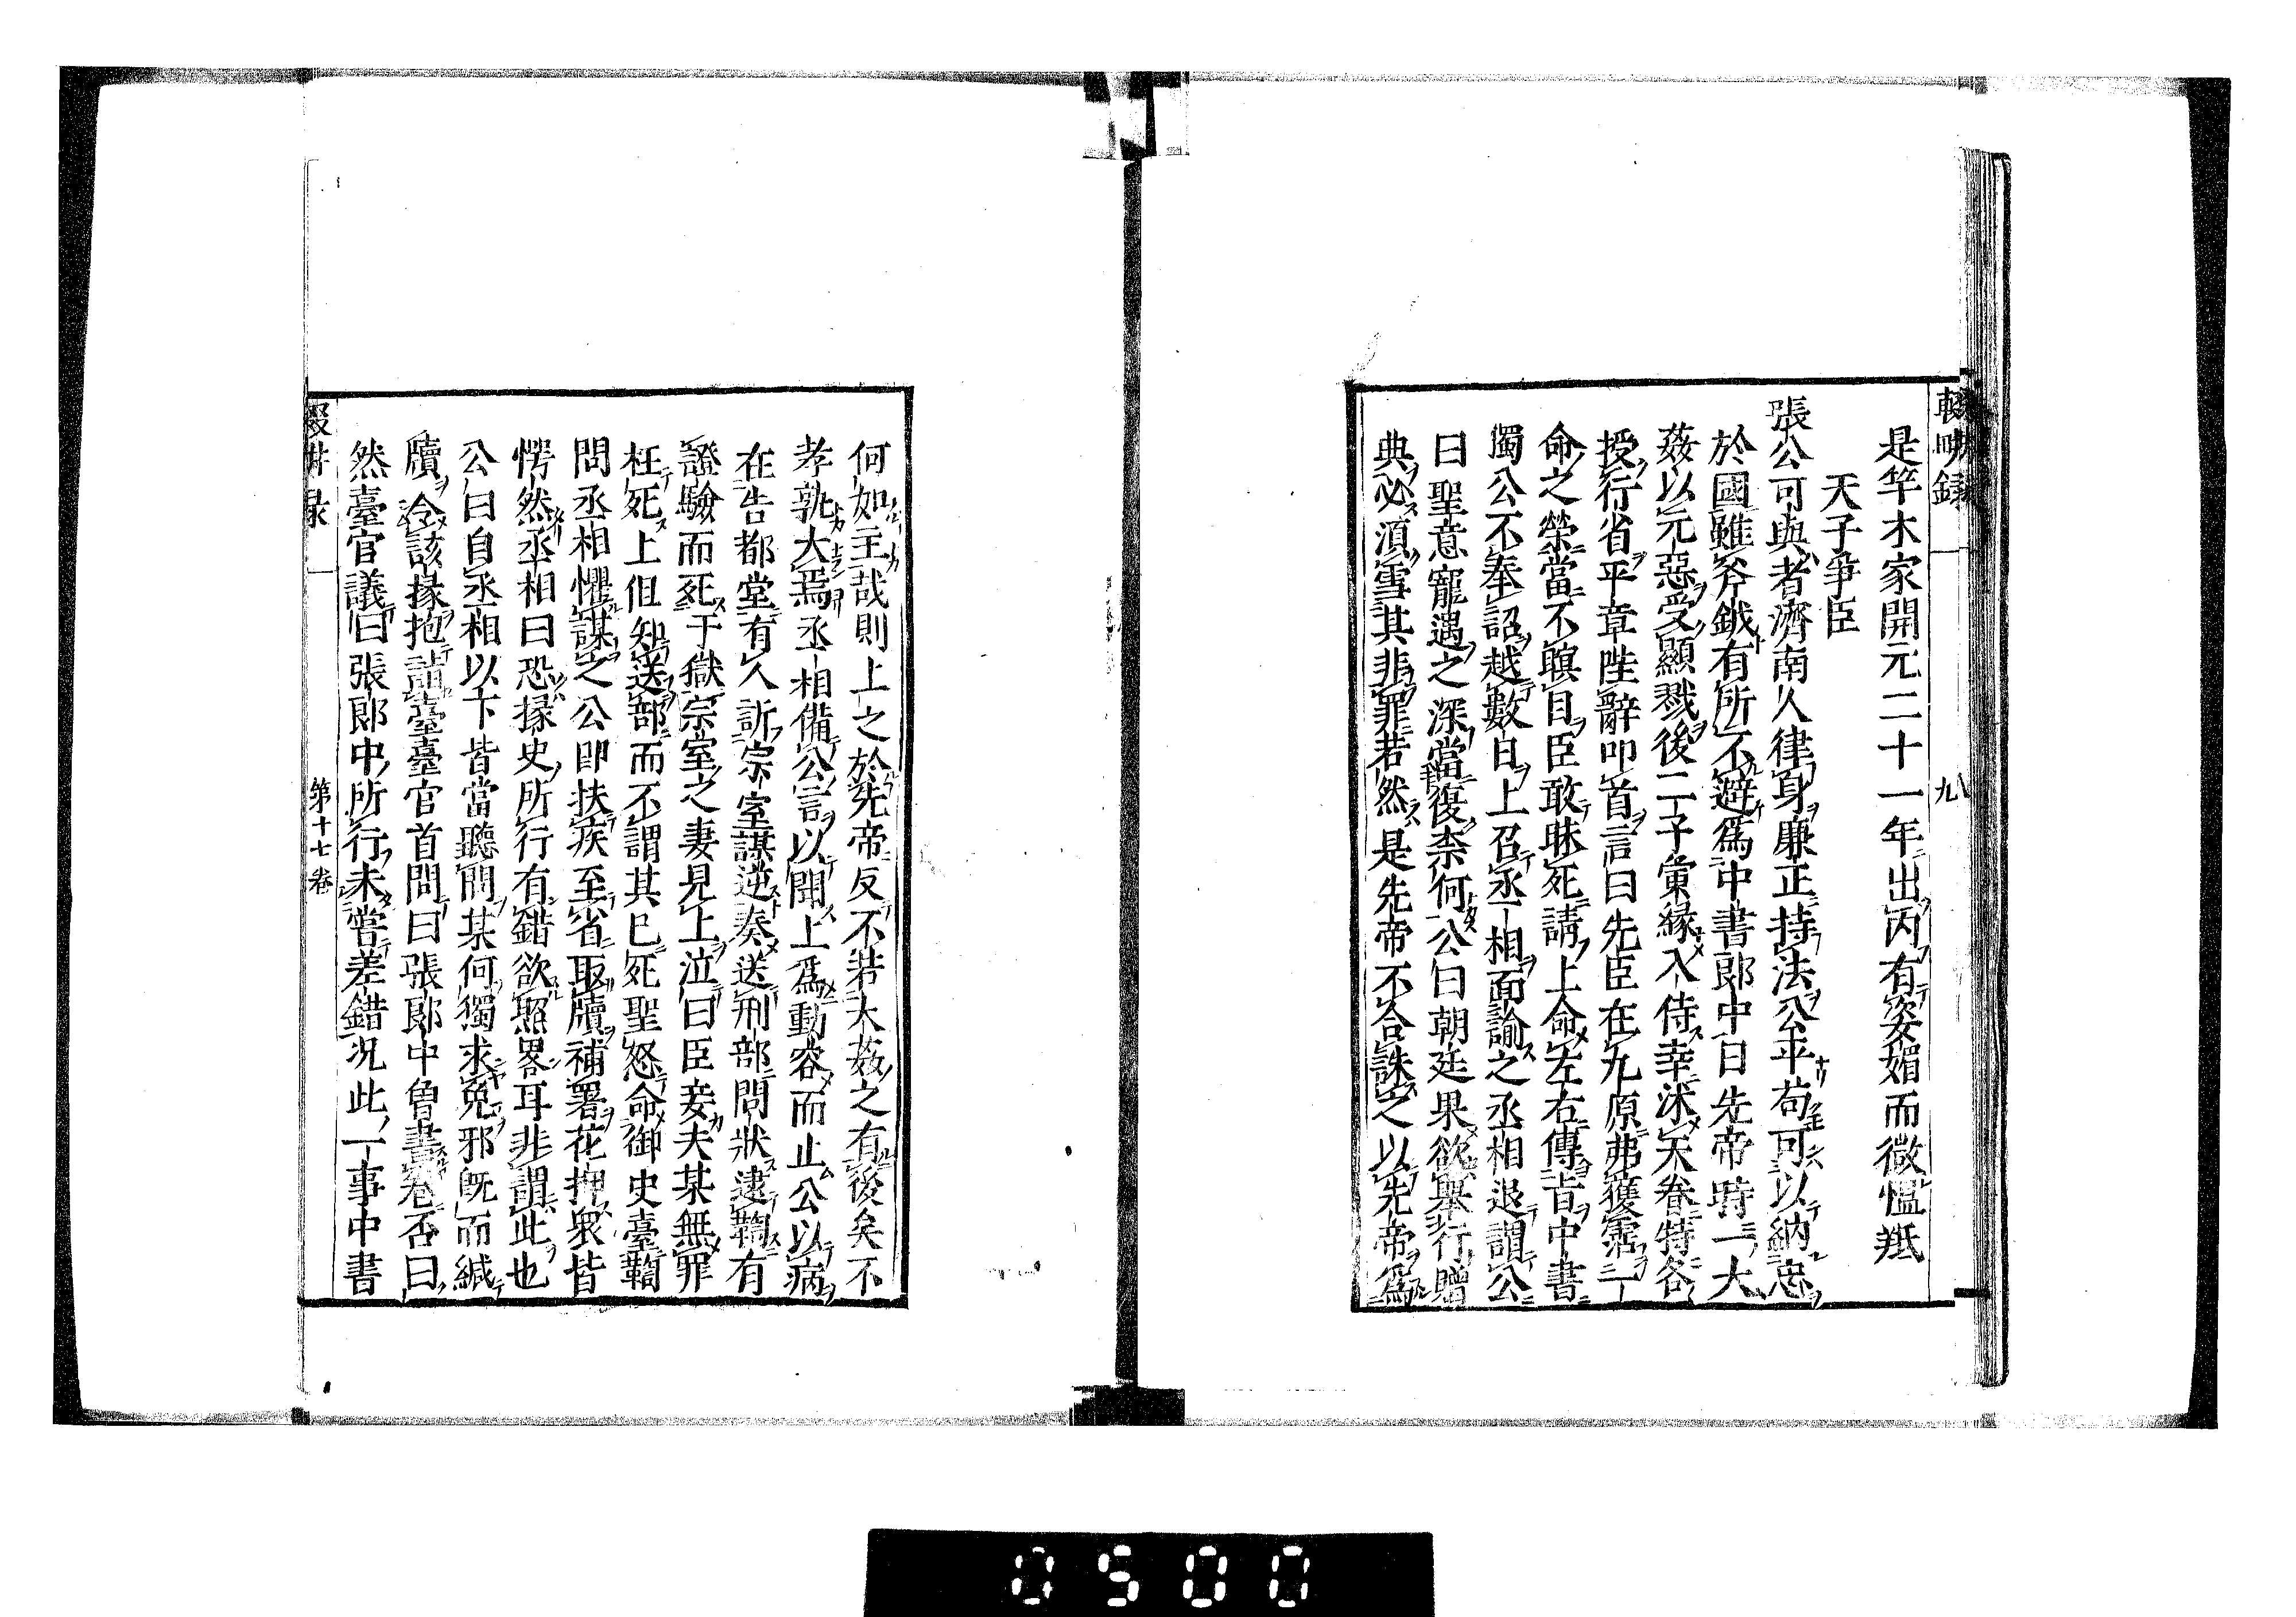 輟畊録
九
是竿木家開元二十一年出内有姿媚而微慍羝
天子爭臣
張公可與者濟南人律身廉正持法公平苟可以納忠
於國雖斧鉞有所不避為中書郎中日先帝時一大
姦以元惡受顯戮後二子夤縁入侍幸沐天眷特各
授行省平章陛辭叩首言曰先臣在九原弗獲霑一
命之榮當不瞑目臣敢昧死請上命左右傳旨中書
獨公不奉詔越數日上召丞相面諭之丞相退謂公
曰聖意寵遇之深當復柰何公曰朝廷果欲舉行贈
典必湏雪其非罪若然是先帝不合誅之以先帝為
何如主哉則上之於先帝反不若大姦之有後矣不
孝孰大焉丞相備公言以聞上為動容而止公以病
在告都堂有人訴宗室謀逆奏送刑部問狀逮鞫有
證驗而死于獄宗室之妻見上泣曰臣妾夫某無罪
枉死上但知送部而不謂其已死聖怒命御史臺鞫
問丞相懼謀之公即扶疾至省取牘補署花押衆皆
愕然丞相曰恐掾史所行有錯欲照畧耳非謂此也
公曰自丞相以下皆當聽問某何獨求免邪既而緘
牘令該掾抱詣臺臺官首問曰張郎中曾書卷否曰
然臺官議曰張郎中所行未嘗差錯况此一事中書
第十七卷
0500